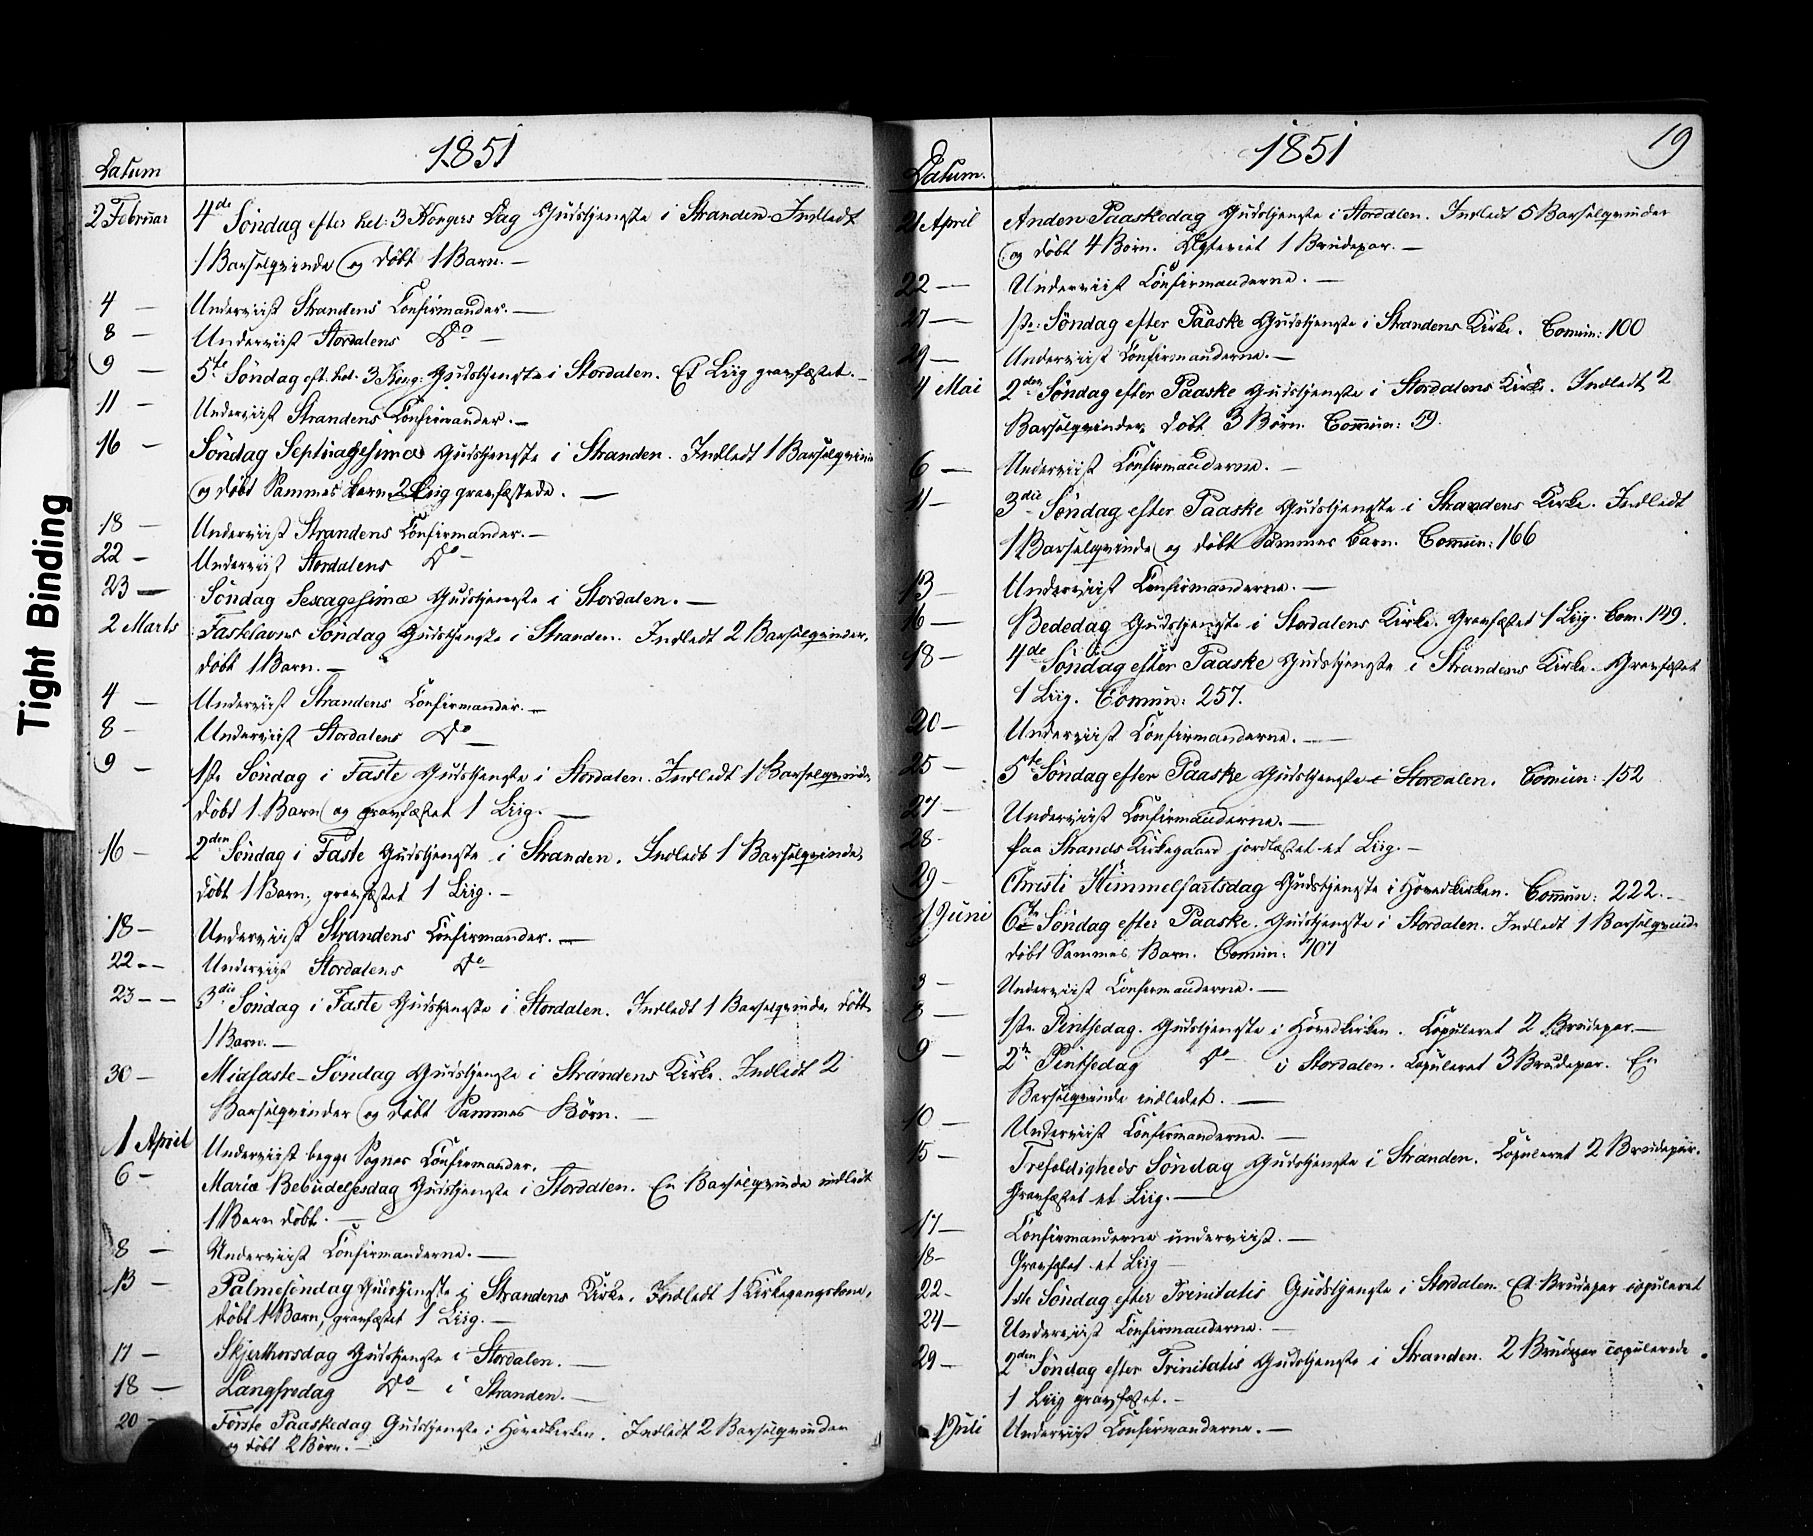 Tight Binding
Datum
1851
2 Februar 4de Söndag efter hel: 3 Kongers Dag Gudstjeneste i Stranden. Indledt
1 Barselqvinde og döbt 1 Barn. —
4 — Underviist Strandens Confirmander. —
8 — Underviist Stordalens Do —
9 — 5te Söndag eft. hel. 3 Kong: Gudstjeneste i Stordalen. Et Liig gravfæstet. —
11 — Underviist Strandens Confirmander. —
16 — Söndag Septuagesimæ Gudstjeneste i Stranden. Indledt 1 Barselqvinde
og döbt Sammes Barn 2 Liig gravfæstede. —
18 — Underviist Strandens Confirmander. —
22 — Underviist Stordalens Do —
23 — Söndag Sexagesimæ Gudstjeneste i Stordalen. —
2 Marts Fastelavns Söndag Gudstjeneste i Stranden. Indledt 2 Barselqvinder,
döbt 1 Barn. —
4 — Underviist Strandens Confirmander. —
8 — Underviist Stordalens Do —
9 — 1ste Söndag i Faste Gudstjeneste i Stordalen. Indledt 1 Barselqvinde,
döbt 1 Barn og gravfæstet 1 Liig. —
16 — 2den Söndag i Faste Gudstjeneste i Stranden. Indledt 1 Barselqvinde,
döbt 1 Barn, gravfæstet 1 Liig. —
18 — Underviist Strandens Confirmander. —
22 — Underviist Stordalens Do
23 — 3die Söndag i Faste Gudstjeneste i Stordalen. Indledt 1 Barselqvinde döbt
1 Barn. —
30 — Midfaste-Söndag Gudstjeneste i Strandens Kirke. Indledt 2
Barselqvinder og döbt Sammes Börn. —
1 April Underviist begge Sognes Confirmander.
6 — Mariæ Bebudelsesdag Gudstjeneste i Stordalen. En Barselqvinde indledt
1 Barn döbt. —
8 — Underviist Confirmanderne. —
13 — Palmesöndag Gudstjeneste i Strandens Kirke. Indledt 1 Kirkegangskone,
döbt 1 Barn, gravfæstet 1 Liig. —
17 — Skjerthorsdag Gudstjeneste i Stordalen. —
18 — Langfredag Do — i Stranden. —
20 — Förste Paaskedag Gudstjeneste i Hovedkirken. Indledt 2 Barselqvinder
og döbt 2 Börn. —
Datum.
1851
19
21 April Anden Paaskedag Gudstjeneste i Stordalen. Indledt 5 Barselqvinder
og döbt 4 Börn. Ægteviet 1 Brudepar. —
22 — Underviist Confirmanderne. —
27 — 1ste: Söndag efter Paaske Gudstjeneste i Strandens Kirke. Comun: 100
29 — Underviist Confirmanderne. —
4 Mai 2den Söndag efter Paaske Gudstjeneste i Stordalens Kirke. Indledt 2
Barselqvinder döbt 3 Börn. Comun: 59.
6 — Underviist Confirmanderne. —
11 — 3die Söndag efter Paaske Gudstjeneste i Strandens Kirke. Indledt
1 Barselqvinde og döbt Sammes Barn. Comun: 166
13 — Underviist Confirmanderne. —
16 — Bededag Gudstjeneste i Stordalens Kirke. Gravfæstet 1 Liig. Com: 149.
18 — 4de Söndag efter Paaske Gudstjeneste i Strandens Kirke. Gravfæstet
1 Liig. Comun: 257.
20 — Underviist Confirmanderne. —
25 — 5te Söndag efter Paaske Gudstjeneste i Stordalen. Comun: 152
27 — Underviist Confirmanderne. —
28 — Paa Strands Kirkegaard jordfæstet et Liig. —
29 — Christi Himmelfartsdag Gudstjeneste i Hovedkirken. Comun: 222. —
1 Juni 6te Söndag efter Paaske. Gudstjeneste i Stordalen. Indledt 1 Barselqvinde
döbt Sammes Barn. Comun: 107
3 — Underviist Confirmanderne. —
8 — 1ste Pintsedag. Gudstjeneste i Hovedkirken. Copuleret 2 Brudepar. —
9 — 2den Pintsedag Do — i Stordalen. Copuleret 3 Brudepar. En
Barselqvinde indledet. —
10 — Underviist Confirmanderne. —
15 — Trefoldigheds Söndag Gudstjeneste i Stranden. Copuleret 2 Brudepar.
Gravfæstet et Liig. —
17 — Confirmanderne underviist. —
18 — Gravfæstet et Liig —
22 — 1ste Söndag efter Trinitatis Gudstjeneste i Stordalen. Et Brudepar copuleret
24 — Underviist Confirmanderne. —
29 — 2den Söndag efter Trinitatis Gudstjeneste i Stranden. 2 Brudepar copulerede.
1 Liig gravfæstet. —
1 Juli Underviist Confirmanderne. —